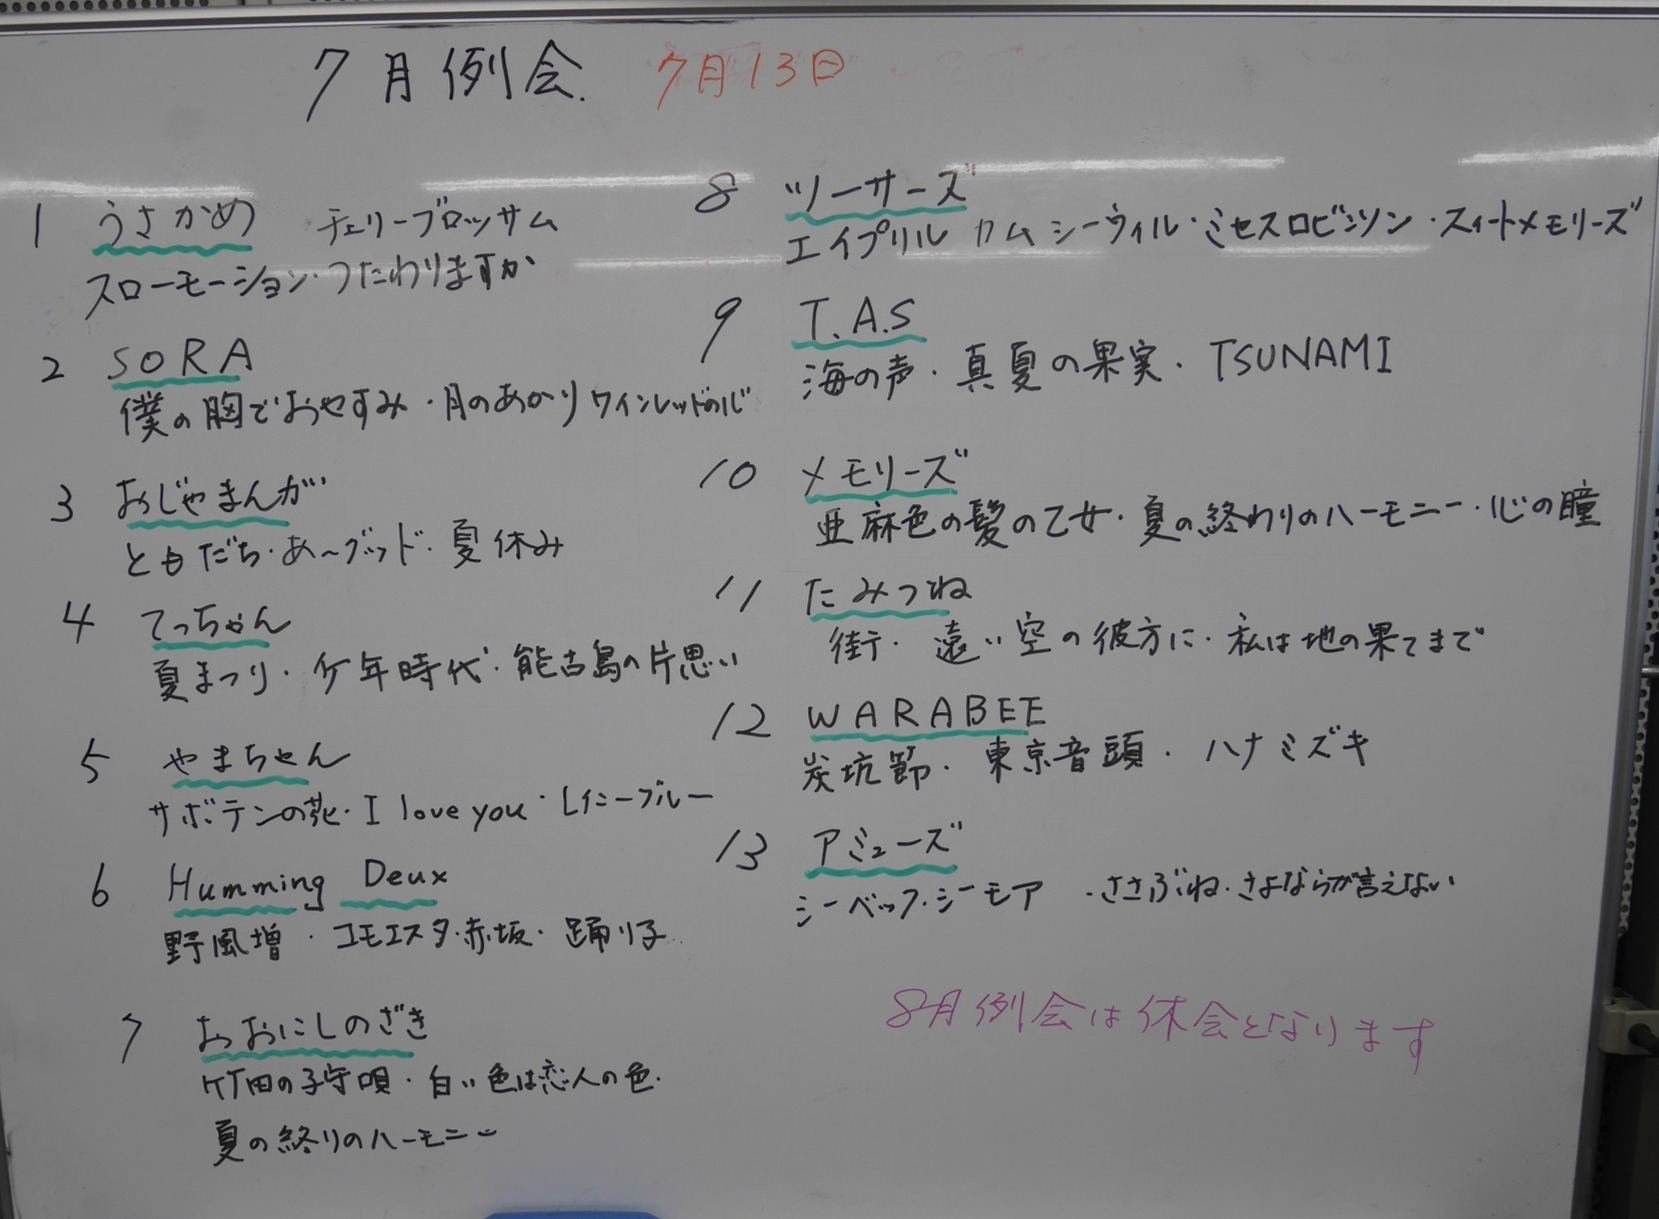 7月例会. 7月13日
1 うさかめ チェリーブロッサム
スローモーション・つたわりますか
2 SORA
僕の胸でおやすみ・月のあかり ワインレッドの心
3 おじゃまんが
ともだち・あ～グッド・夏休み
4 てっちゃん
夏まつり・少年時代・能古島の片思い
5 やまちゃん
サボテンの花・I love you・レイニーブルー
6 Humming Deux
野風増・コモエスタ・赤坂・踊り子
7 おおにしのざき
竹田の子守唄・白い色は恋人の色・
夏の終りのハーモニー
8 ツーサーズ
エイプリル カム シーウィル・ミセスロビンソン・スィートメモリーズ
9 T.A.S
海の声・真夏の果実・TSUNAMI
10 メモリーズ
亜麻色の髪の乙女・夏の終わりのハーモニー・心の瞳
11 たみつね
街・遠い空の彼方に・私は地の果てまで
12 WARABEE
炭坑節・東京音頭・ハナミズキ
13 アミューズ
シーベック・シーモア・ささぶね・さよならが言えない
8月例会は休会となります